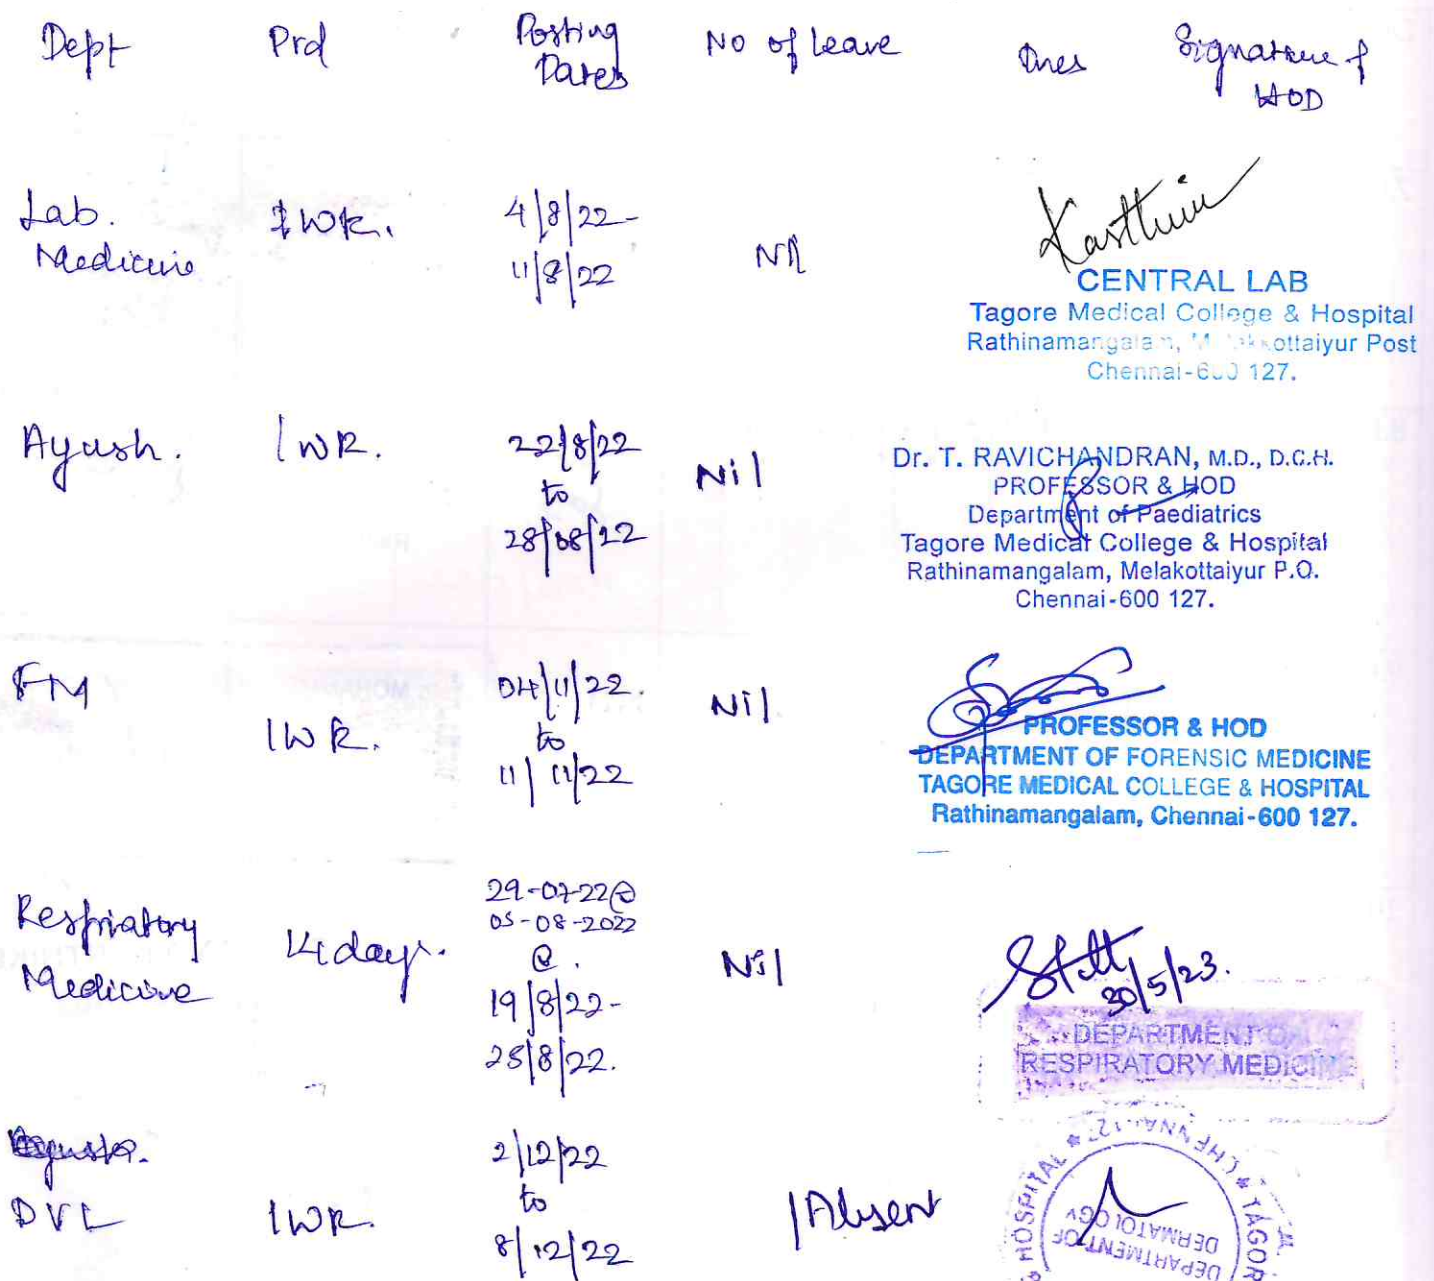 Dept Prd Posting Dates No of leave Dues Signature of HOD
Lab. Medicine 1 WK. 4/8/22- 11/8/22 Nil
CENTRAL LAB
Tagore Medical College & Hospital
Rathinamangalam, Melakkottaiyur Post
Chennai-600 127.
Ayush. 1 WK. 22/8/22 to 28/08/22 Nil
Dr. T. RAVICHANDRAN, M.D., D.C.H.
PROFESSOR & HOD
Department of Paediatrics
Tagore Medical College & Hospital
Rathinamangalam, Melakottaiyur P.O.
Chennai-600 127.
FM 1 WK. 04/11/22. to 11/11/22 Nil
PROFESSOR & HOD
DEPARTMENT OF FORENSIC MEDICINE
TAGORE MEDICAL COLLEGE & HOSPITAL
Rathinamangalam, Chennai-600 127.
Respiratory Medicine 14 days. 29-07-22 @ 05-08-2022 @. 19/8/22- 25/8/22. Nil
30/5/23.
DEPARTMENT OF
RESPIRATORY MEDICINE
DVL 1 WK. 2/12/22 to 8/12/22 1 Absent
DEPARTMENT OF
DERMATOLOGY
HOSPITAL * CHENNAI-127 * TAGOR